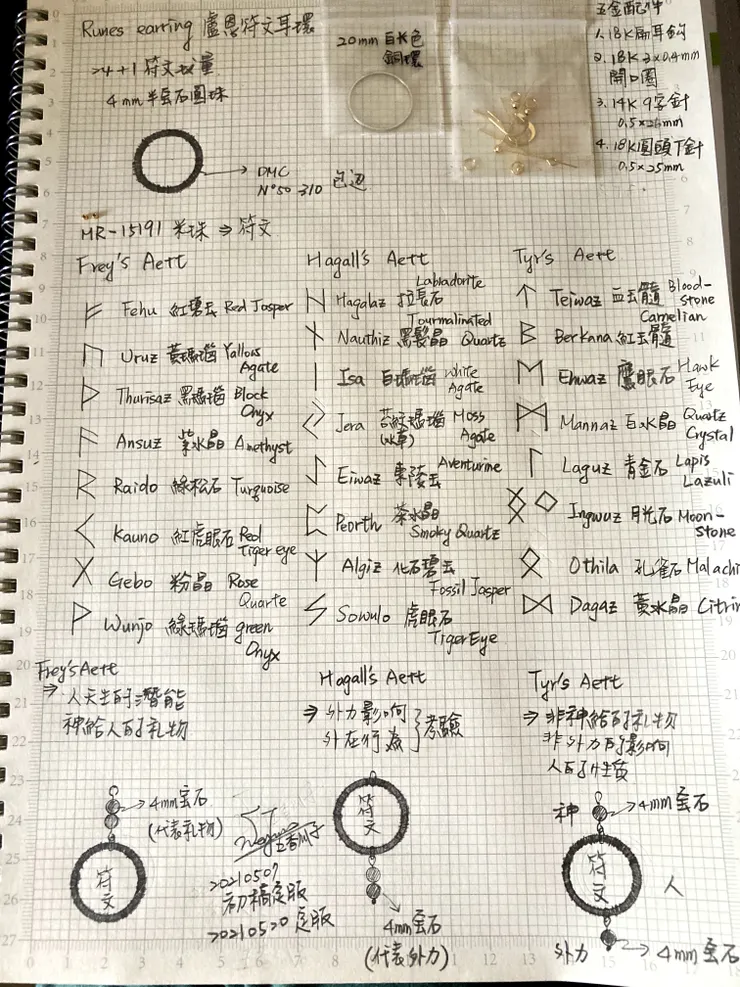 Runes earring 盧恩符文耳環
24+1 符文
4mm 半宝石圓珠
DMC
N°50 310 包边
20mm 白米色
銅環
五金配件
1. 18K扁耳鈎
2. 18K 3×0.4mm
開口圈
3. 14K 9字針
4. 18K圓頭丁針
0.5×25mm
MR-15191 米珠 ⇒ 符文
Frey's Aett
ᚠ Fehu 紅碧玉 Red Jasper
ᚢ Uruz 黃瑪瑙 Yallow
Agate
ᚦ Thurisaz 黑瑪瑙 Block
Onyx
ᚨ Ansuz 紫水晶 Amethyst
ᚱ Raido 綠松石 Turquoise
ᚲ Kauno 紅虎眼石 Red
Tiger eye
ᚷ Gebo 粉晶 Rose
Quarte
ᚹ Wunjo 綠瑪瑙 green
Onyx
Hagall's Aett
ᚺ Hagalaz 拉長石 Labradorite
ᚾ Nauthiz 黑髮晶 Tourmalinated
Quartz
ᛁ Isa 白瑪瑙 White
Agate
ᛃ Jera 苔紋瑪瑙 Moss
(水草) Agate
ᛇ Eiwaz 東陵玉 Aventurine
ᛈ Peorth 茶水晶
Smoky Quartz
ᛉ Algiz 化石碧玉
Fossil Jasper
ᛊ Sowulo 虎眼石
TigerEye
Tyr's Aett
ᛏ Teiwaz 血玉髓 Blood-
stone
ᛒ Berkana 紅玉髓 Carnelian
ᛖ Ehwaz 鷹眼石 Hawk
Eye
ᛗ Mannaz 白水晶 Quartz
Crystal
ᛚ Laguz 青金石 Lapis
Lazuli
ᛝ ◇ Ingwuz 月光石 Moon-
stone
ᛟ Othila 孔雀石 Malachi
ᛞ Dagaz 黃水晶 Citrin
Frey's Aett
⇒ 人天生的潛能
神給人的礼物
4mm宝石
(代表礼物)
符
文
20210507
初稿定版
20210520 定版
Hagall's Aett
⇒ 外力影响
外在行為
考驗
符
文
4mm 宝石
(代表外力)
Tyr's Aett
⇒ 非神給的礼物
非外力的影响
人的性质
神
4mm宝石
符
文
人
外力
4mm 宝石